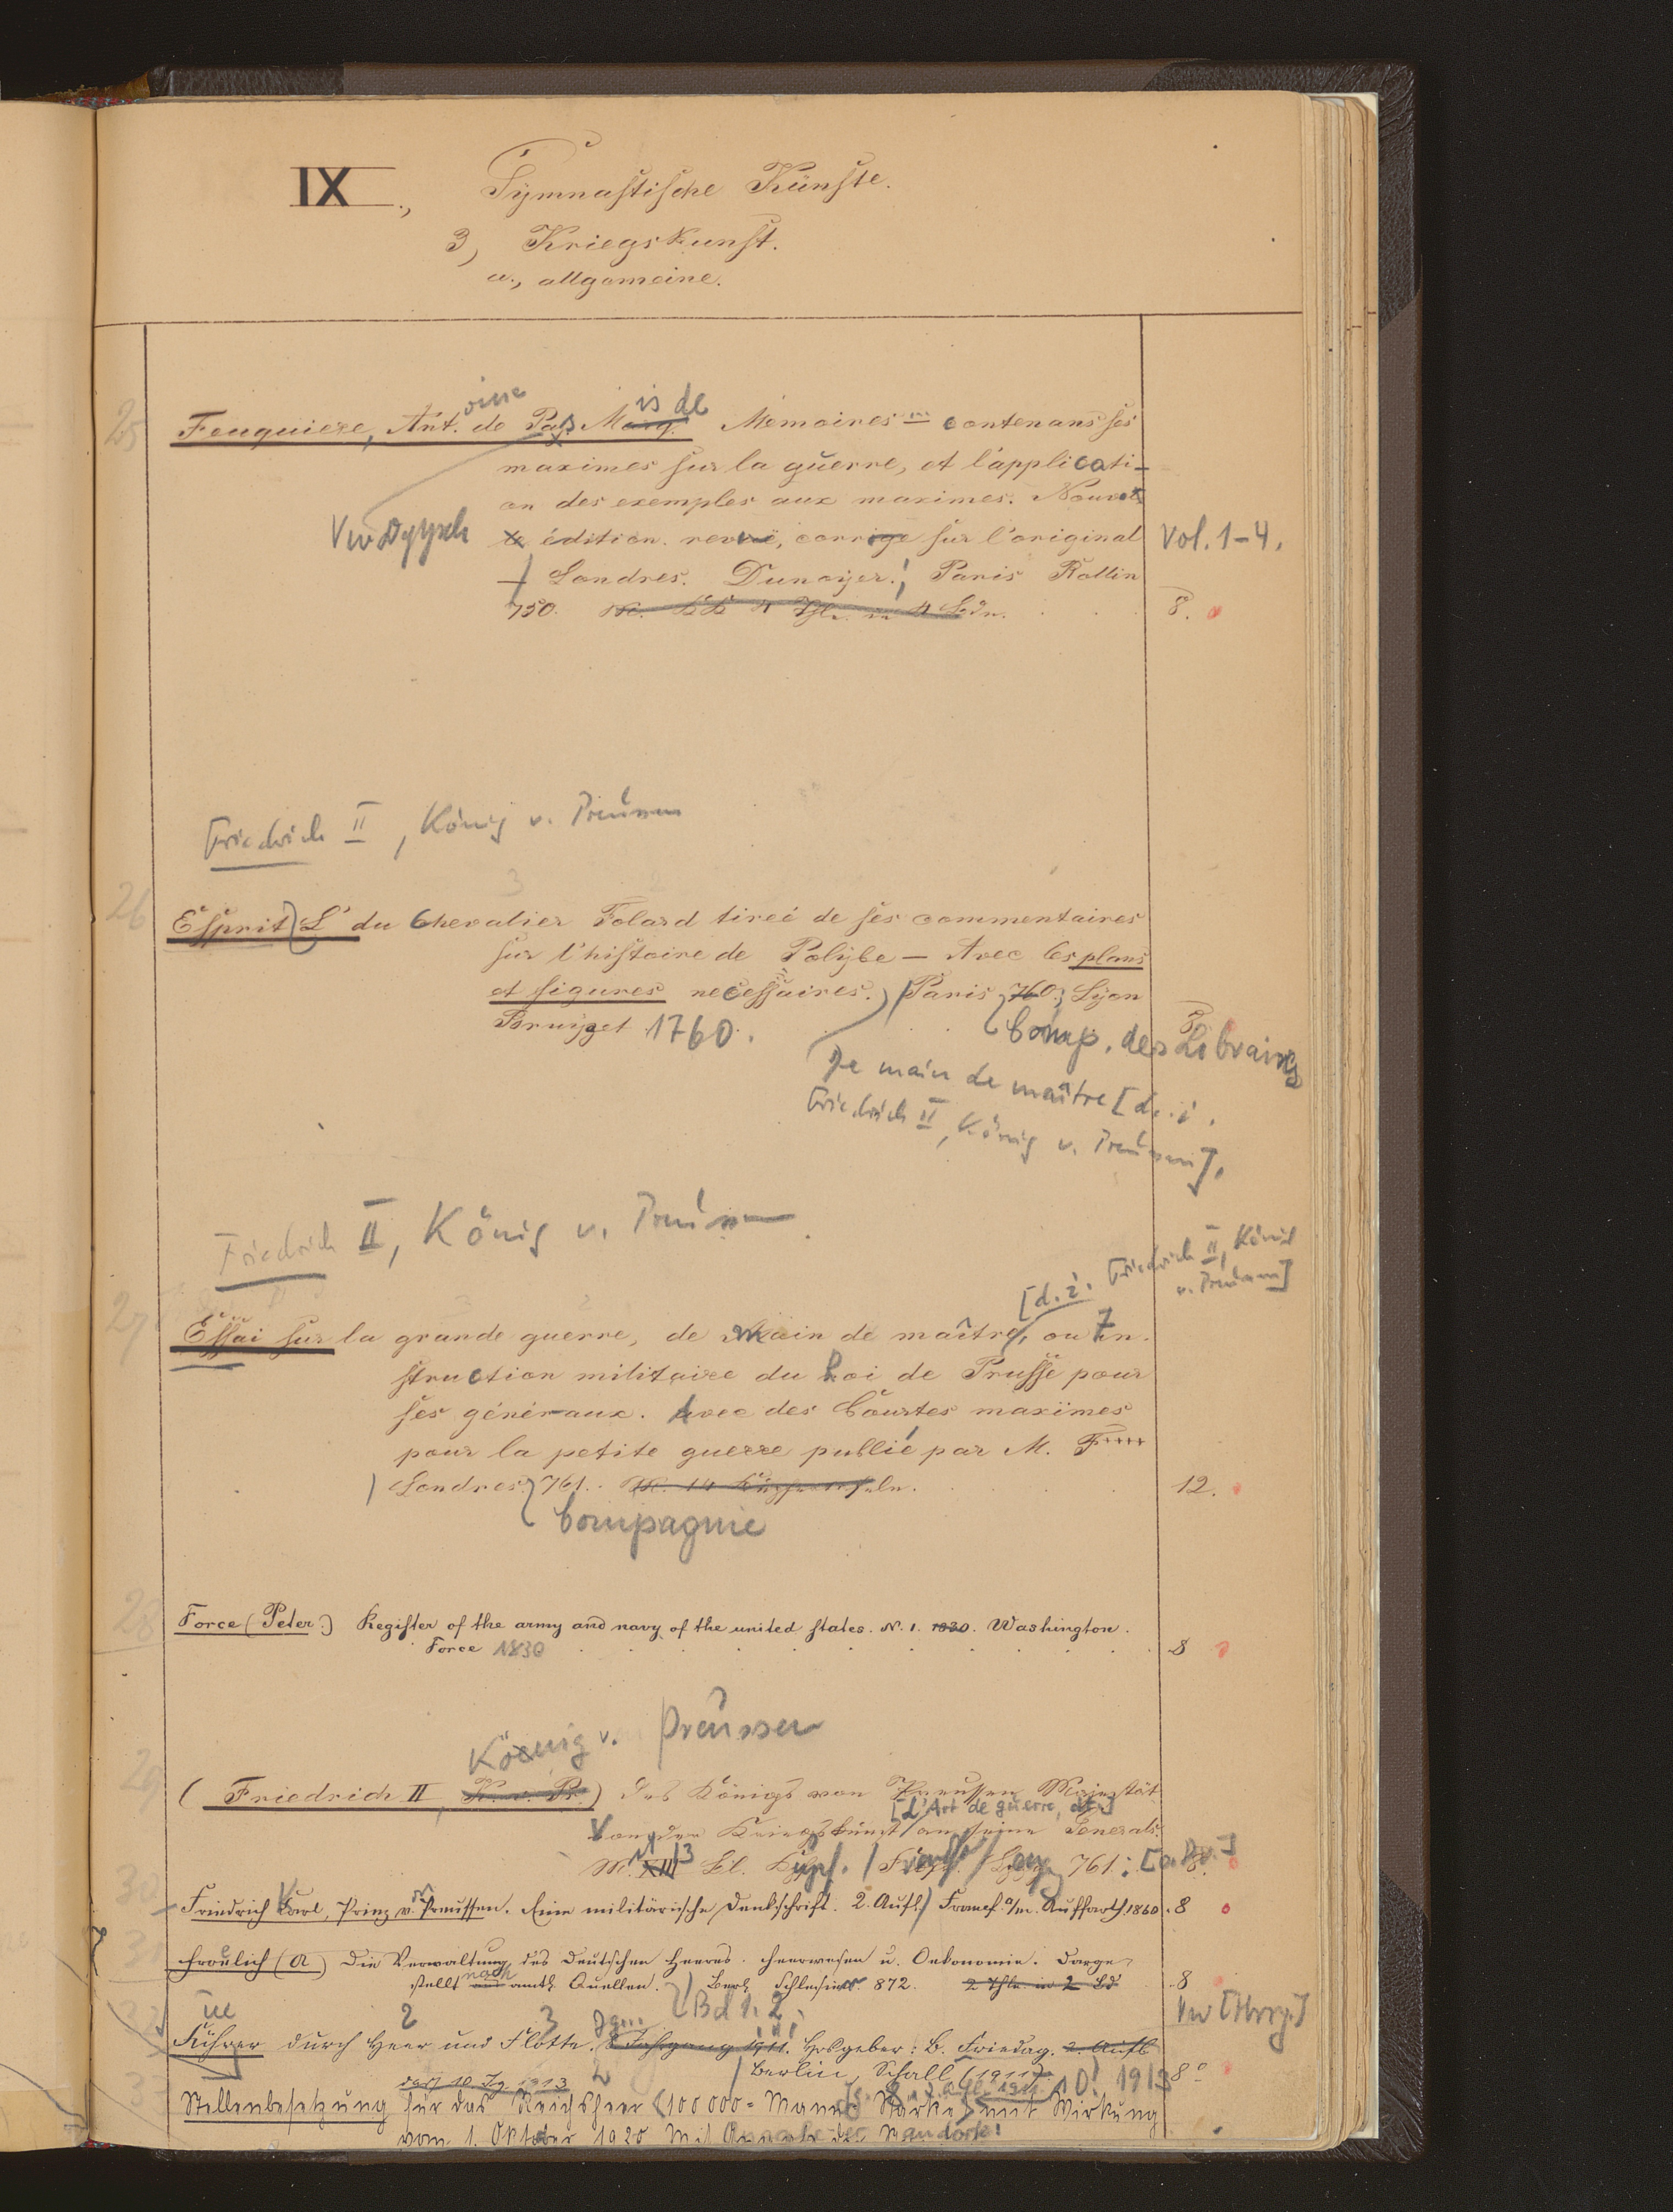 IX., Gymnastische Künste.
3, Kriegskunst.
a., allgemeine.
oine
is de
25
Feuquiere, Ant. de Pass Marq. Memoires contenans ses
maximes sur la guerre, et l'applicati-
on des exemples aux maximes. Nouvel
le édition. revue, corrige sur l'original Vol. 1-4.
Londres. Dunoyer. Paris Rollin
750. 8.
Friedrich II, König v. Preussen
26
Esprit, L' du Chevalier Folard tireé de ses commentaires
sur l'histoire de Polybe — Avec les plans
et figures necessaires. Paris, 760. Lyon
Bruyzet 1760. 8
Comp. des Libraires
De main de maître [d. i.
Friedrich II, König v. Preussen],
Friedrich II, König v. Preussen
[d. i. Friedrich II, König
v. Preussen]
27
Essai sur la grande guerre, de Main de maître, ou In-
struction militaire du Roi de Prusse pour
ses généraux. Avec des Courtes maximes
pour la petite guerre publié par M. F++++
Londres. 761. 12.
Compagnie
28
Force (Peter) Register of the army and navy of the united states. N. 1. 1830. Washington.
Force 1830 8
König v. Preussen
29
(Friedrich II, K. v. Pr.) Des Königs von Preussen Majestät
[L'Art de guerre, dt.]
von der Kriegskunst an seine Generals.
M. XIII 13 761. 8.
30
Friedrich Karl, Prinz v. Preussen. Eine militärische Denkschrift. 2. Aufl. Francf. a/m. Auffarth, 1860. 8
31
Froelich (A) Die Verwaltung des Deutschen Heeres. Heerwesen u. Oekonomie. Darge-
stellt nach amtl. Quellen. Berl. Schlesier. 872. 2 Thle. in 2 Bd 8
Bd 1. 2
32
2 3 Jg.
Führer durch Heer und Flotte. 8 Jahrgang 1911. Hrsgeber: B. Friedag. 2. Aufl
Berlin, Schall (1911) 8°
10. 1913
10 Jg 1913
Stellenbesetzung für das Reichsheer (100 000 = Mann Stärke) mit Wirkung
vom 1. Oktober 1920 Mit